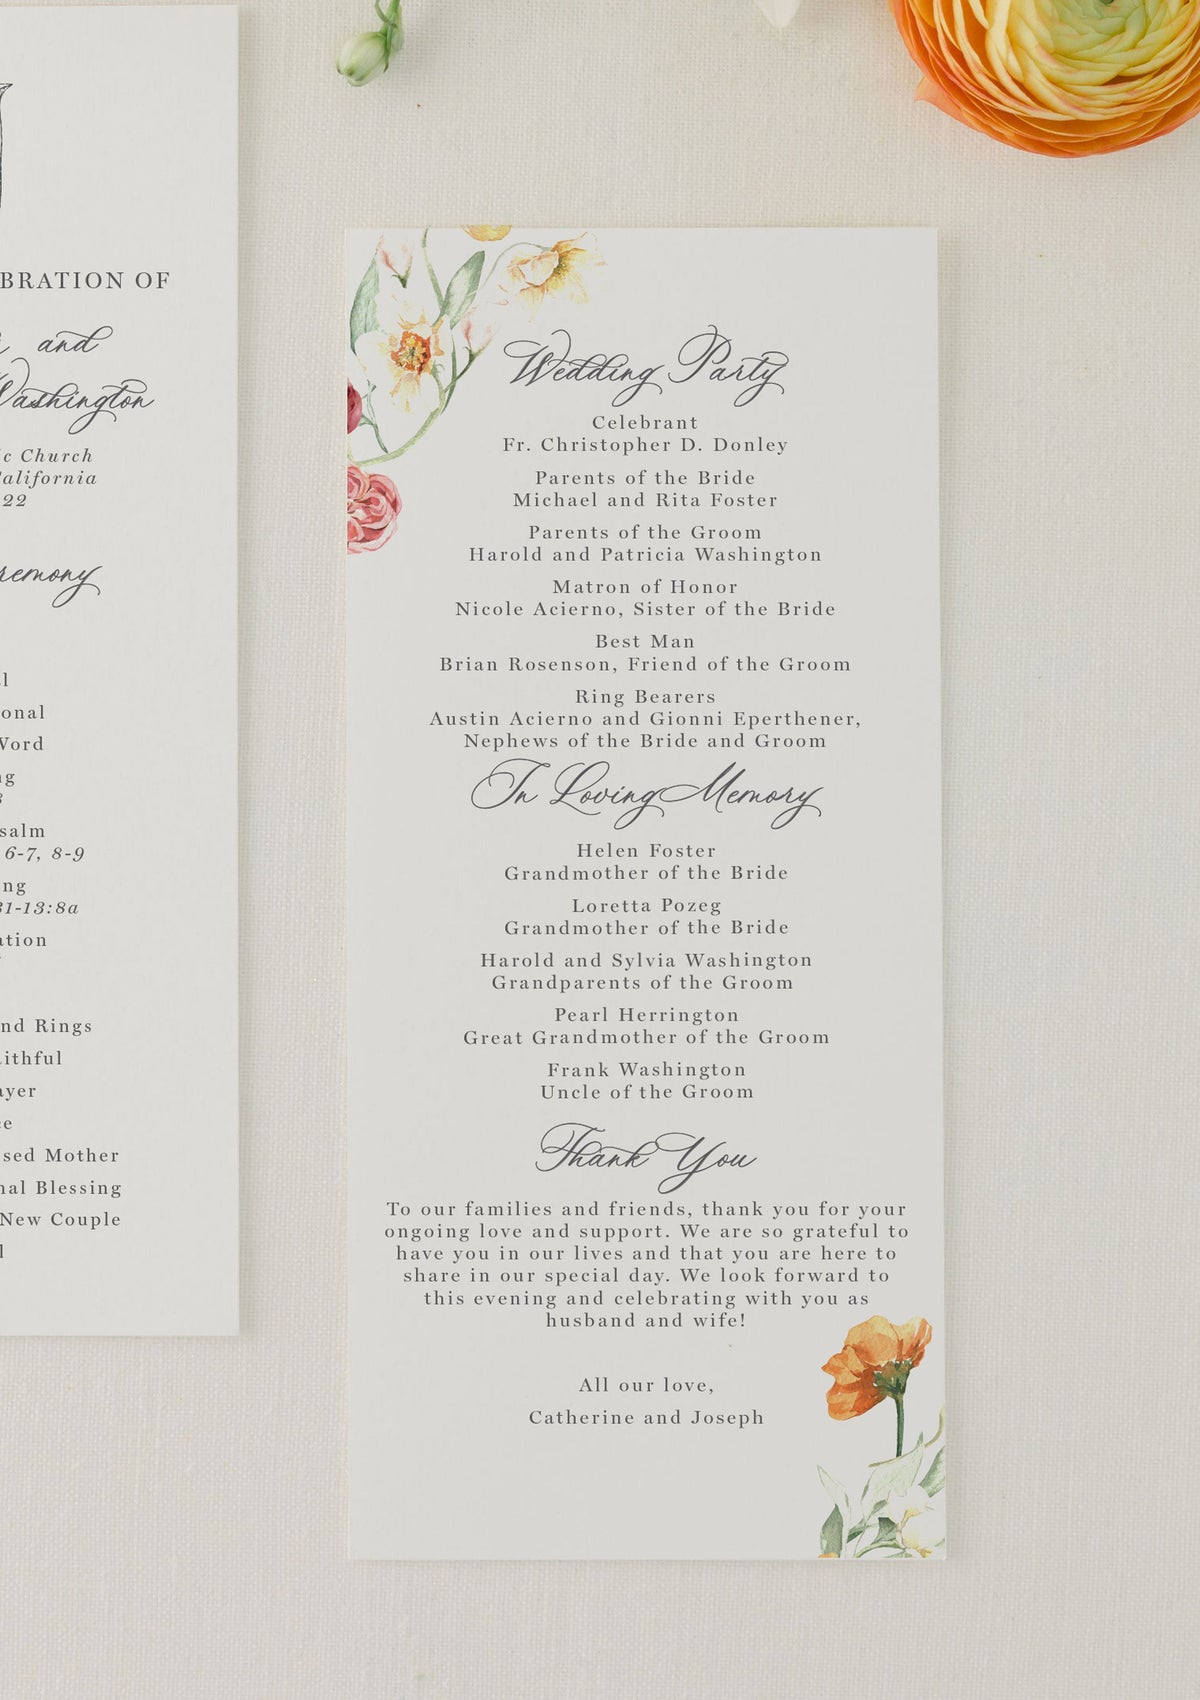 BRATION OF
and
Washington
Church
California
22
l
Word
6-7, 8-9
31-13:8a
nd Rings
Mother
Blessing
New Couple
Wedding Party
Celebrant
Fr. Christopher D. Donley
Parents of the Bride
Michael and Rita Foster
Parents of the Groom
Harold and Patricia Washington
Matron of Honor
Nicole Acierno, Sister of the Bride
Best Man
Brian Rosenson, Friend of the Groom
Ring Bearers
Austin Acierno and Gionni Eperthener,
Nephews of the Bride and Groom
In Loving Memory
Helen Foster
Grandmother of the Bride
Loretta Pozeg
Grandmother of the Bride
Harold and Sylvia Washington
Grandparents of the Groom
Pearl Herrington
Great Grandmother of the Groom
Frank Washington
Uncle of the Groom
Thank You
To our families and friends, thank you for your
ongoing love and support. We are so grateful to
have you in our lives and that you are here to
share in our special day. We look forward to
this evening and celebrating with you as
husband and wife!
All our love,
Catherine and Joseph